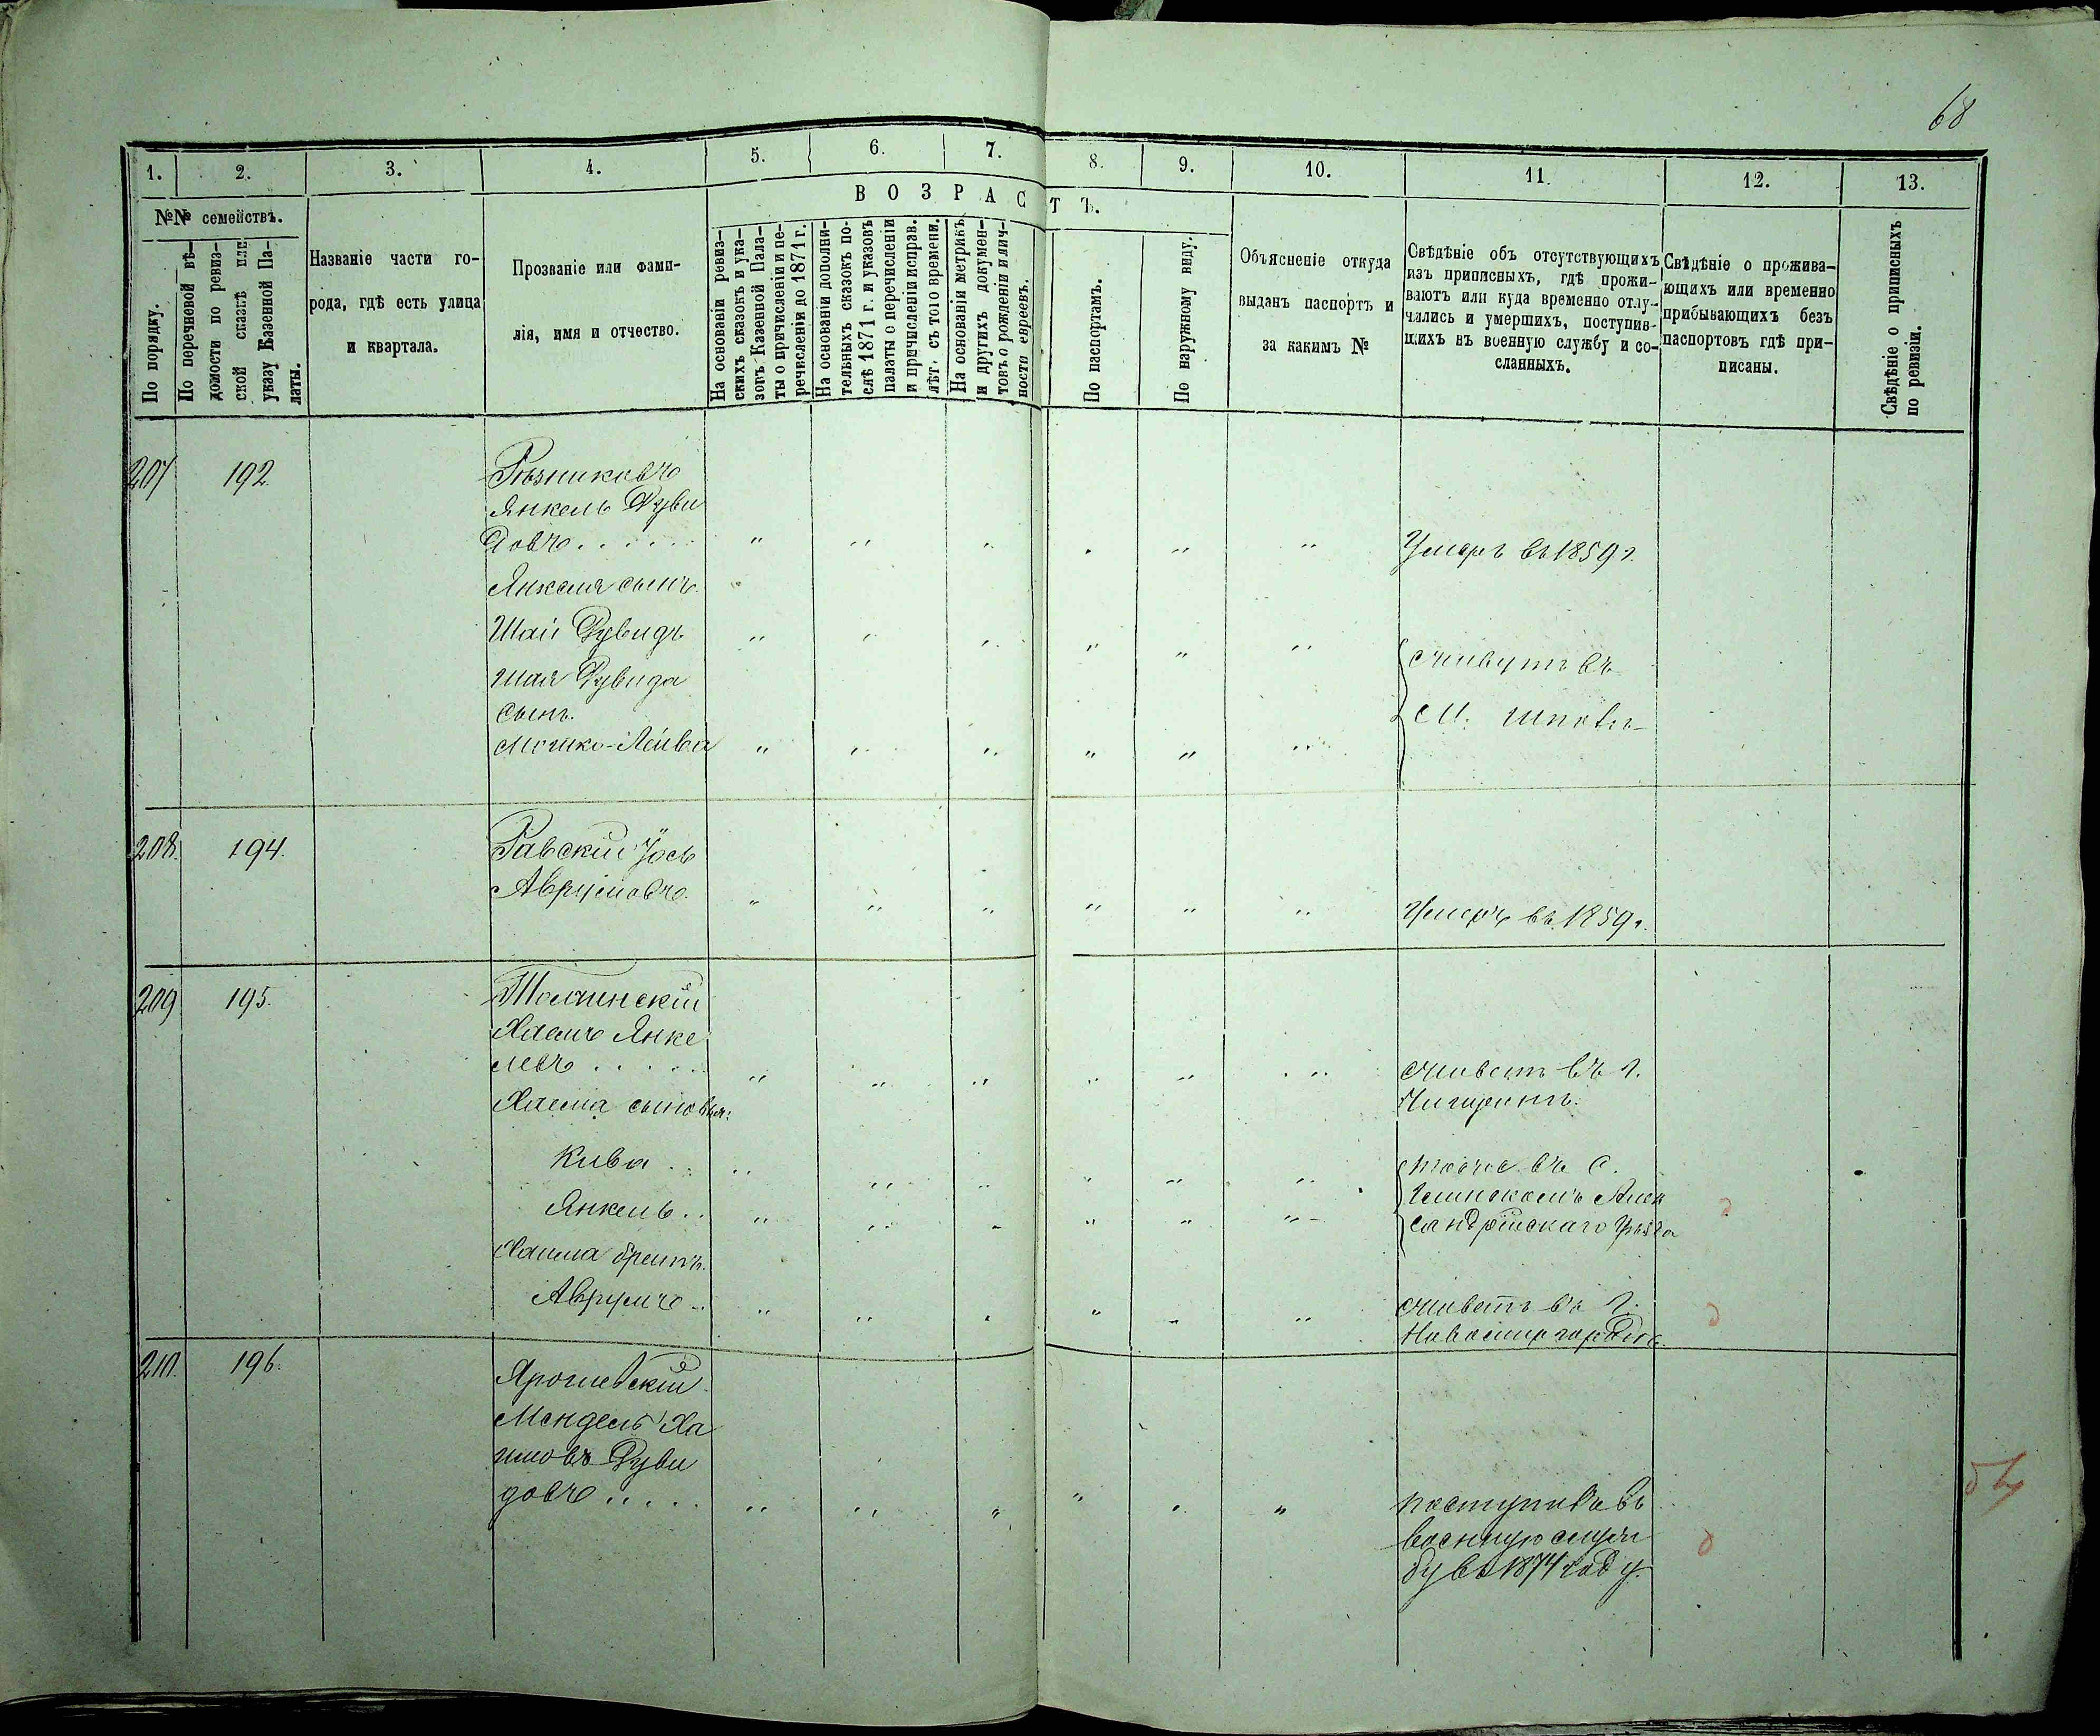 68
1. 2. 3. 4. 5. 6. 7. 8. 9. 10. 11. 12. 13.
№№ семействъ.
ВОЗРАСТЪ.
По порядку.
По перечневой вѣ-
домости по ревиз-
ской сказкѣ или
указу Казенной Па-
латы.
Названіе части го-
рода, гдѣ есть улица
и квартала.
Прозваніе или фами-
лія, имя и отчество.
На основаніи ревиз-
скихъ сказокъ и ука-
зовъ Казенной Пала-
ты о причисленіи и пе-
речисленіи до 1871 г.
На основаніи дополни-
тельныхъ сказокъ по-
слѣ 1871 г. и указовъ
палаты о перечисленіи
и причисленіи исправ.
лѣт. съ того времени.
На основаніи метрикъ
и другихъ докумен-
товъ о рожденіи и лич-
ности евреевъ.
По паспортамъ.
По наружному виду.
Объясненіе откуда
выданъ паспортъ и
за какимъ №
Свѣдѣніе объ отсутствующихъ
изъ приписныхъ, гдѣ прожи-
ваютъ или куда временно отлу-
чились и умершихъ, поступив-
шихъ въ военную службу и со-
сланныхъ.
Свѣдѣніе о прожива-
ющихъ или временно
прибывающихъ безъ
паспортовъ гдѣ при-
писаны.
Свѣдѣніе о приписныхъ
по ревизіи.
207 192. Рѣзниковъ
Янкель Дуви
довъ...... " " " " " " Умеръ въ 1859 г.
Янкеля сынъ.
Шая Дувидъ " " " " " " живутъ въ
Шая Дувида
сынъ. М. Шпола
Мошко-Лейба " " " " " "
208. 194. Равскій Іось
Аврумовъ. " " " " " " Умеръ въ 1859 г.
209 195. Толчинскій
Хаемъ Янке
левъ..... " " " " " " живетъ въ г.
Хаема сыновья: Чигиринъ.
Кива.. " " " " " " тоже въ С.
Янкель.. " " " " " " Алек
сандрійскаго уѣзда
Хаима братъ.
Аврумъ.. " " " " " " живетъ въ г.
Новомиргородѣ.
210. 196. Ярошевскій
Мендель Ха
имовъ Дуви
довъ..... " " " " " " поступилъ въ
военную служ
бу въ 1874 году.